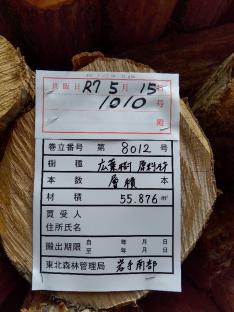 共販日 R7 5 15
1010 号 殿
巻立番号 第 8012 号
樹種 広葉樹 原料材
本数 層積 本
材積 55.876 ㎥
買受人
住所氏名
搬出期限 自 年 月 日
至 年 月 日
東北森林管理局 岩手南部